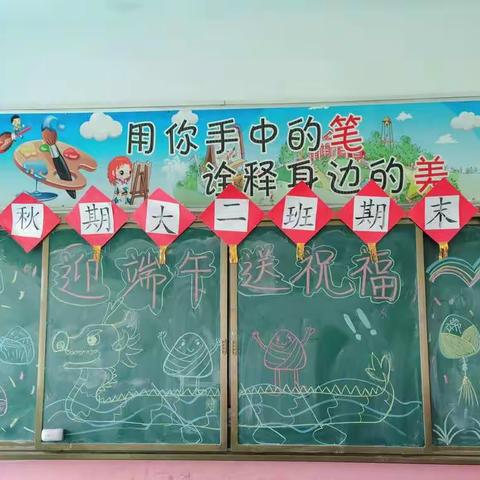 用你手中的笔
诠释身边的美
秋期大二班期末
迎端午 送祝福